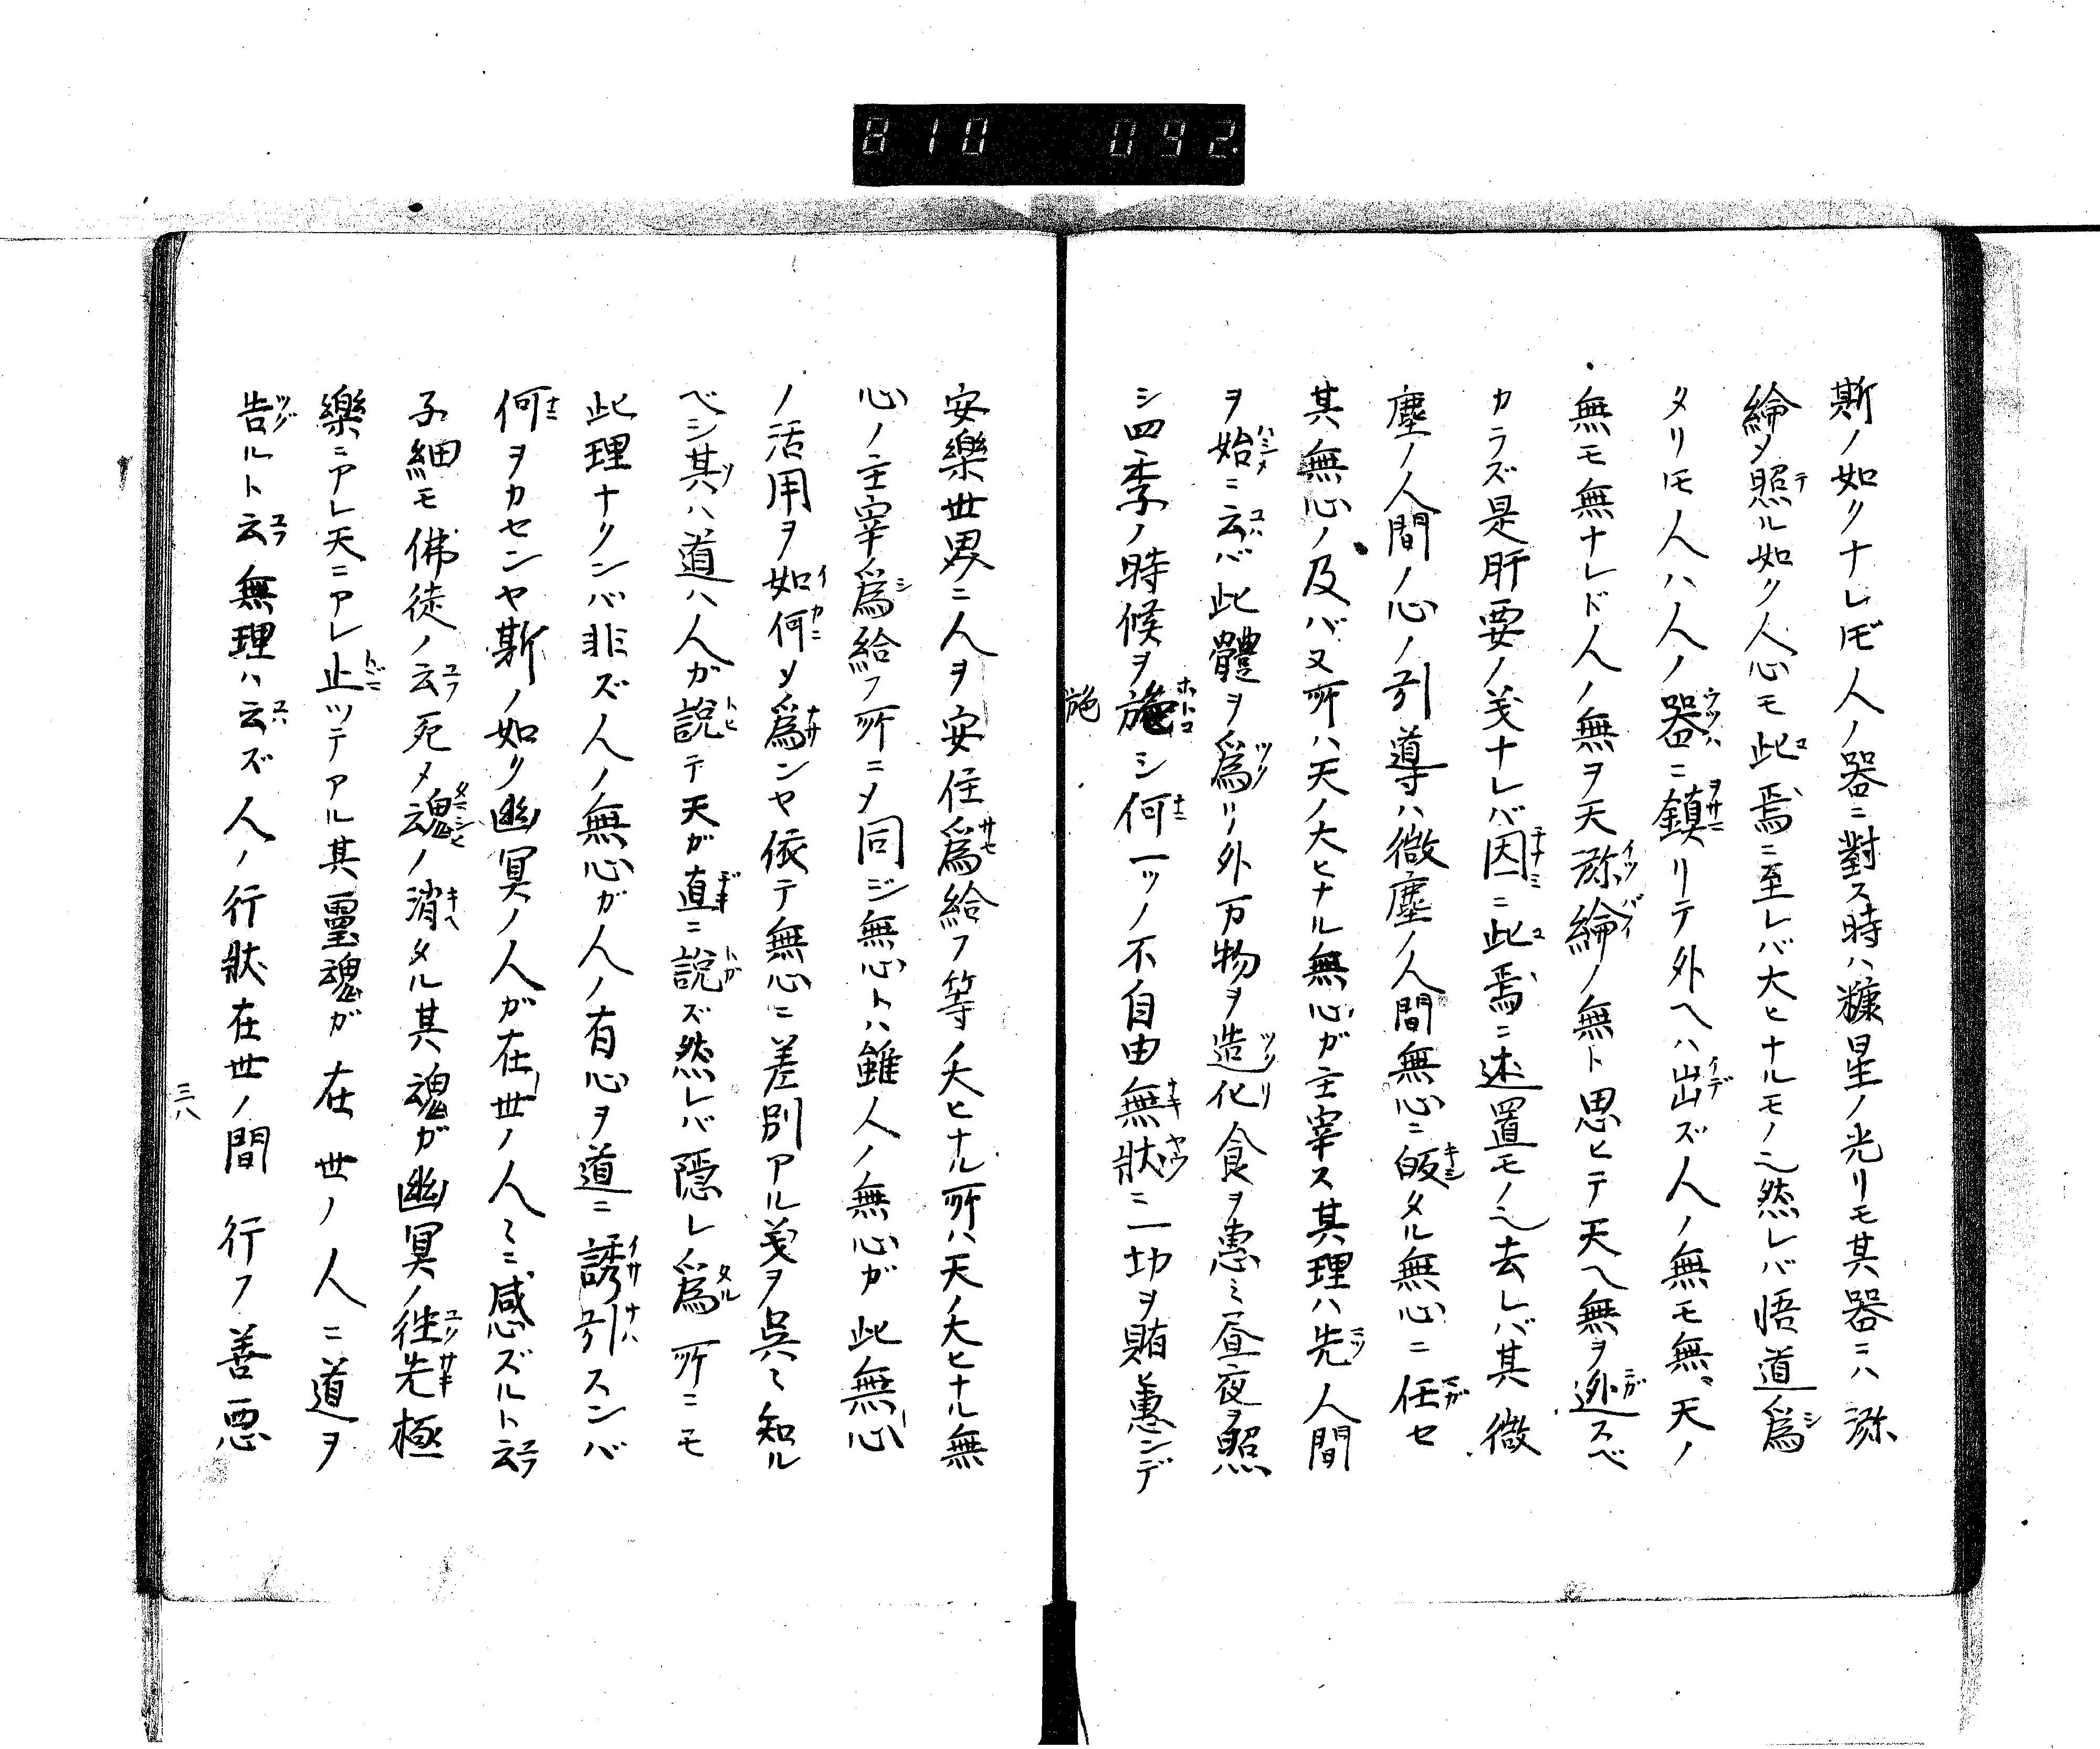 810 092.
斯ノ如クナレ𪜈人ノ器ニ對ス時ハ糠星ノ光リモ其器ニハ弥
綸〆照ル如ク人心モ此焉ニ至レバ大ヒナルモノ也然レバ悟道爲
タリ𪜈人ハ人ノ器ニ鎮リテ外ヘハ出ズ人ノ無モ無天ノ
無モ無ナレド人ノ無ヲ天弥綸ノ無ト思ヒテ天ヘ無ヲ迯スベ
カラズ是肝要ノ义ナレバ因ニ此焉ニ述置モノ也去レバ其微
塵ノ人間ノ心ノ引導ハ微塵ノ人間無心ニ皈タル無心ニ任セ
其無心ノ及バヌ所ハ天ノ大ヒナル無心ガ主宰ス其理ハ先人間
ヲ始ニ云バ此體ヲ爲リ外万物ヲ造化食ヲ恵ミ昼夜ヲ照
シ四季ノ時候ヲ施シ何一ツノ不自由無状ニ一切ヲ賄ヒ惠ンデ
施
安樂世界ニ人ヲ安住爲給フ等ノ大ヒナル所ハ天ノ大ヒナル無
心ノ主宰爲給フ所ニ〆同ジ無心トハ雖人ノ無心ガ此無心
ノ活用ヲ如何〆爲ンヤ依テ無心ニ差別アル義ヲ呉ミ知ル
ベシ其ハ道ハ人ガ説テ天ガ直ニ説ズ然レバ隠レ爲所ニモ
此理ナクンバ非ズ人ノ無心ガ人ノ有心ヲ道ニ誘引スンバ
何ヲカセンヤ斯ノ如ク幽冥ノ人ガ在世ノ人ミニ感ズルト云
子細モ佛徒ノ云死〆魂ノ消タル其魂ガ幽冥ノ徃先極
樂ニアレ天ニアレ止ツテアル其靈魂ガ在世ノ人ニ道ヲ
告ルト云無理ハ云ズ人ノ行状在世ノ間行フ善惡
三八